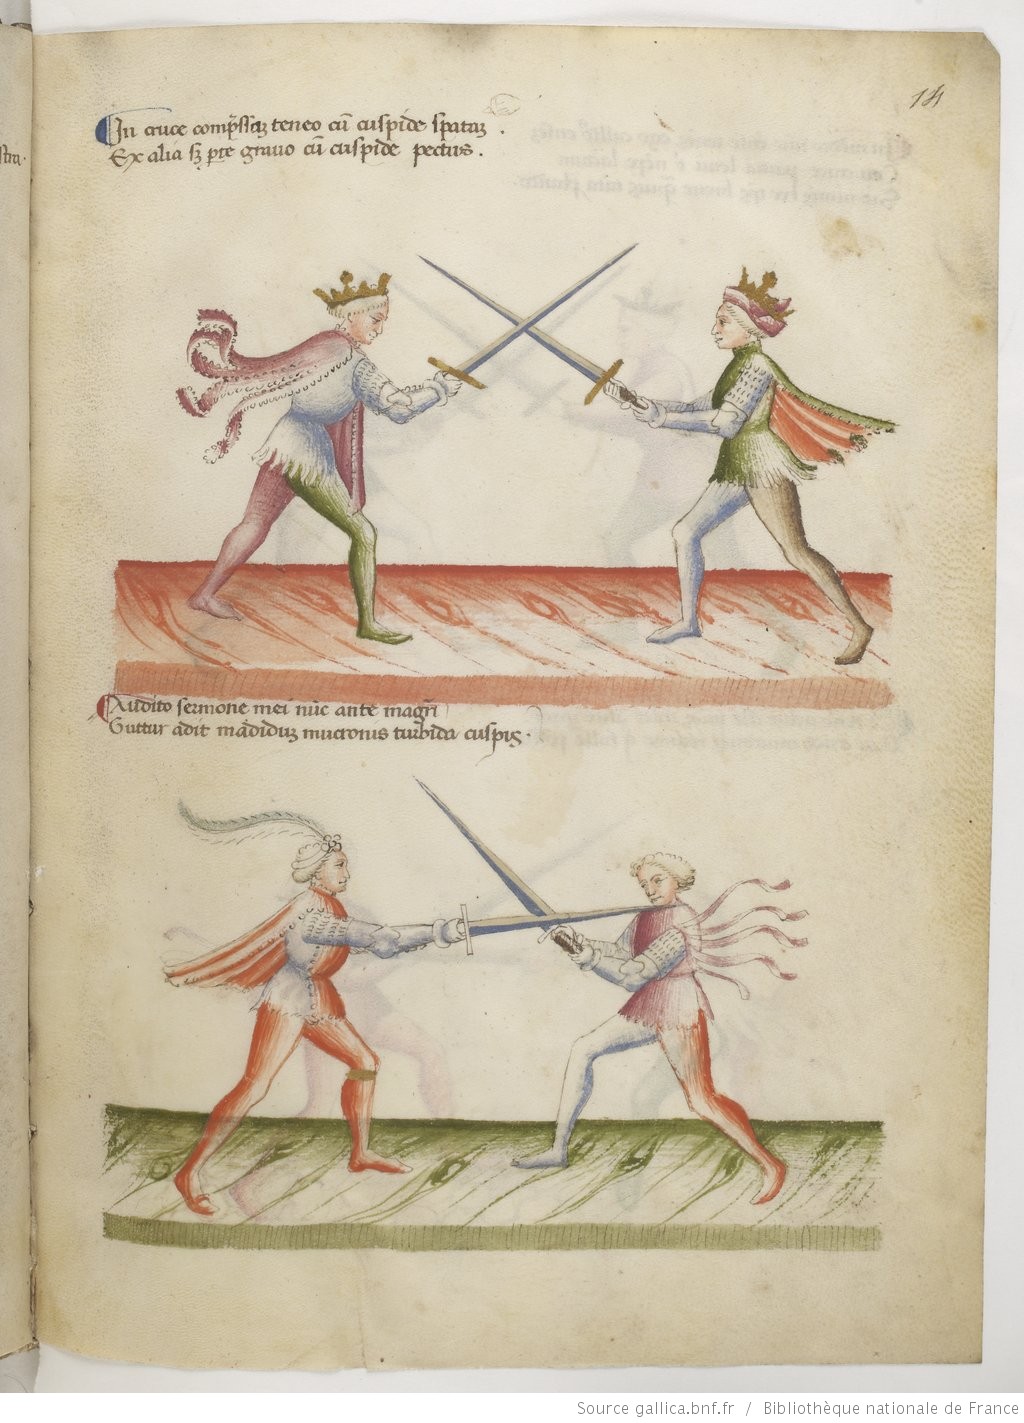 14
In cruce compssaʒ teneo cū cuspide spataʒ .
Ex alia sʒ pte grauo cū cuspide pectus .
stra .
Audito sermone mei nūc ante magri
Guttur adit madiduʒ mucronis turbida cuspis .
Source gallica.bnf.fr / Bibliothèque nationale de France